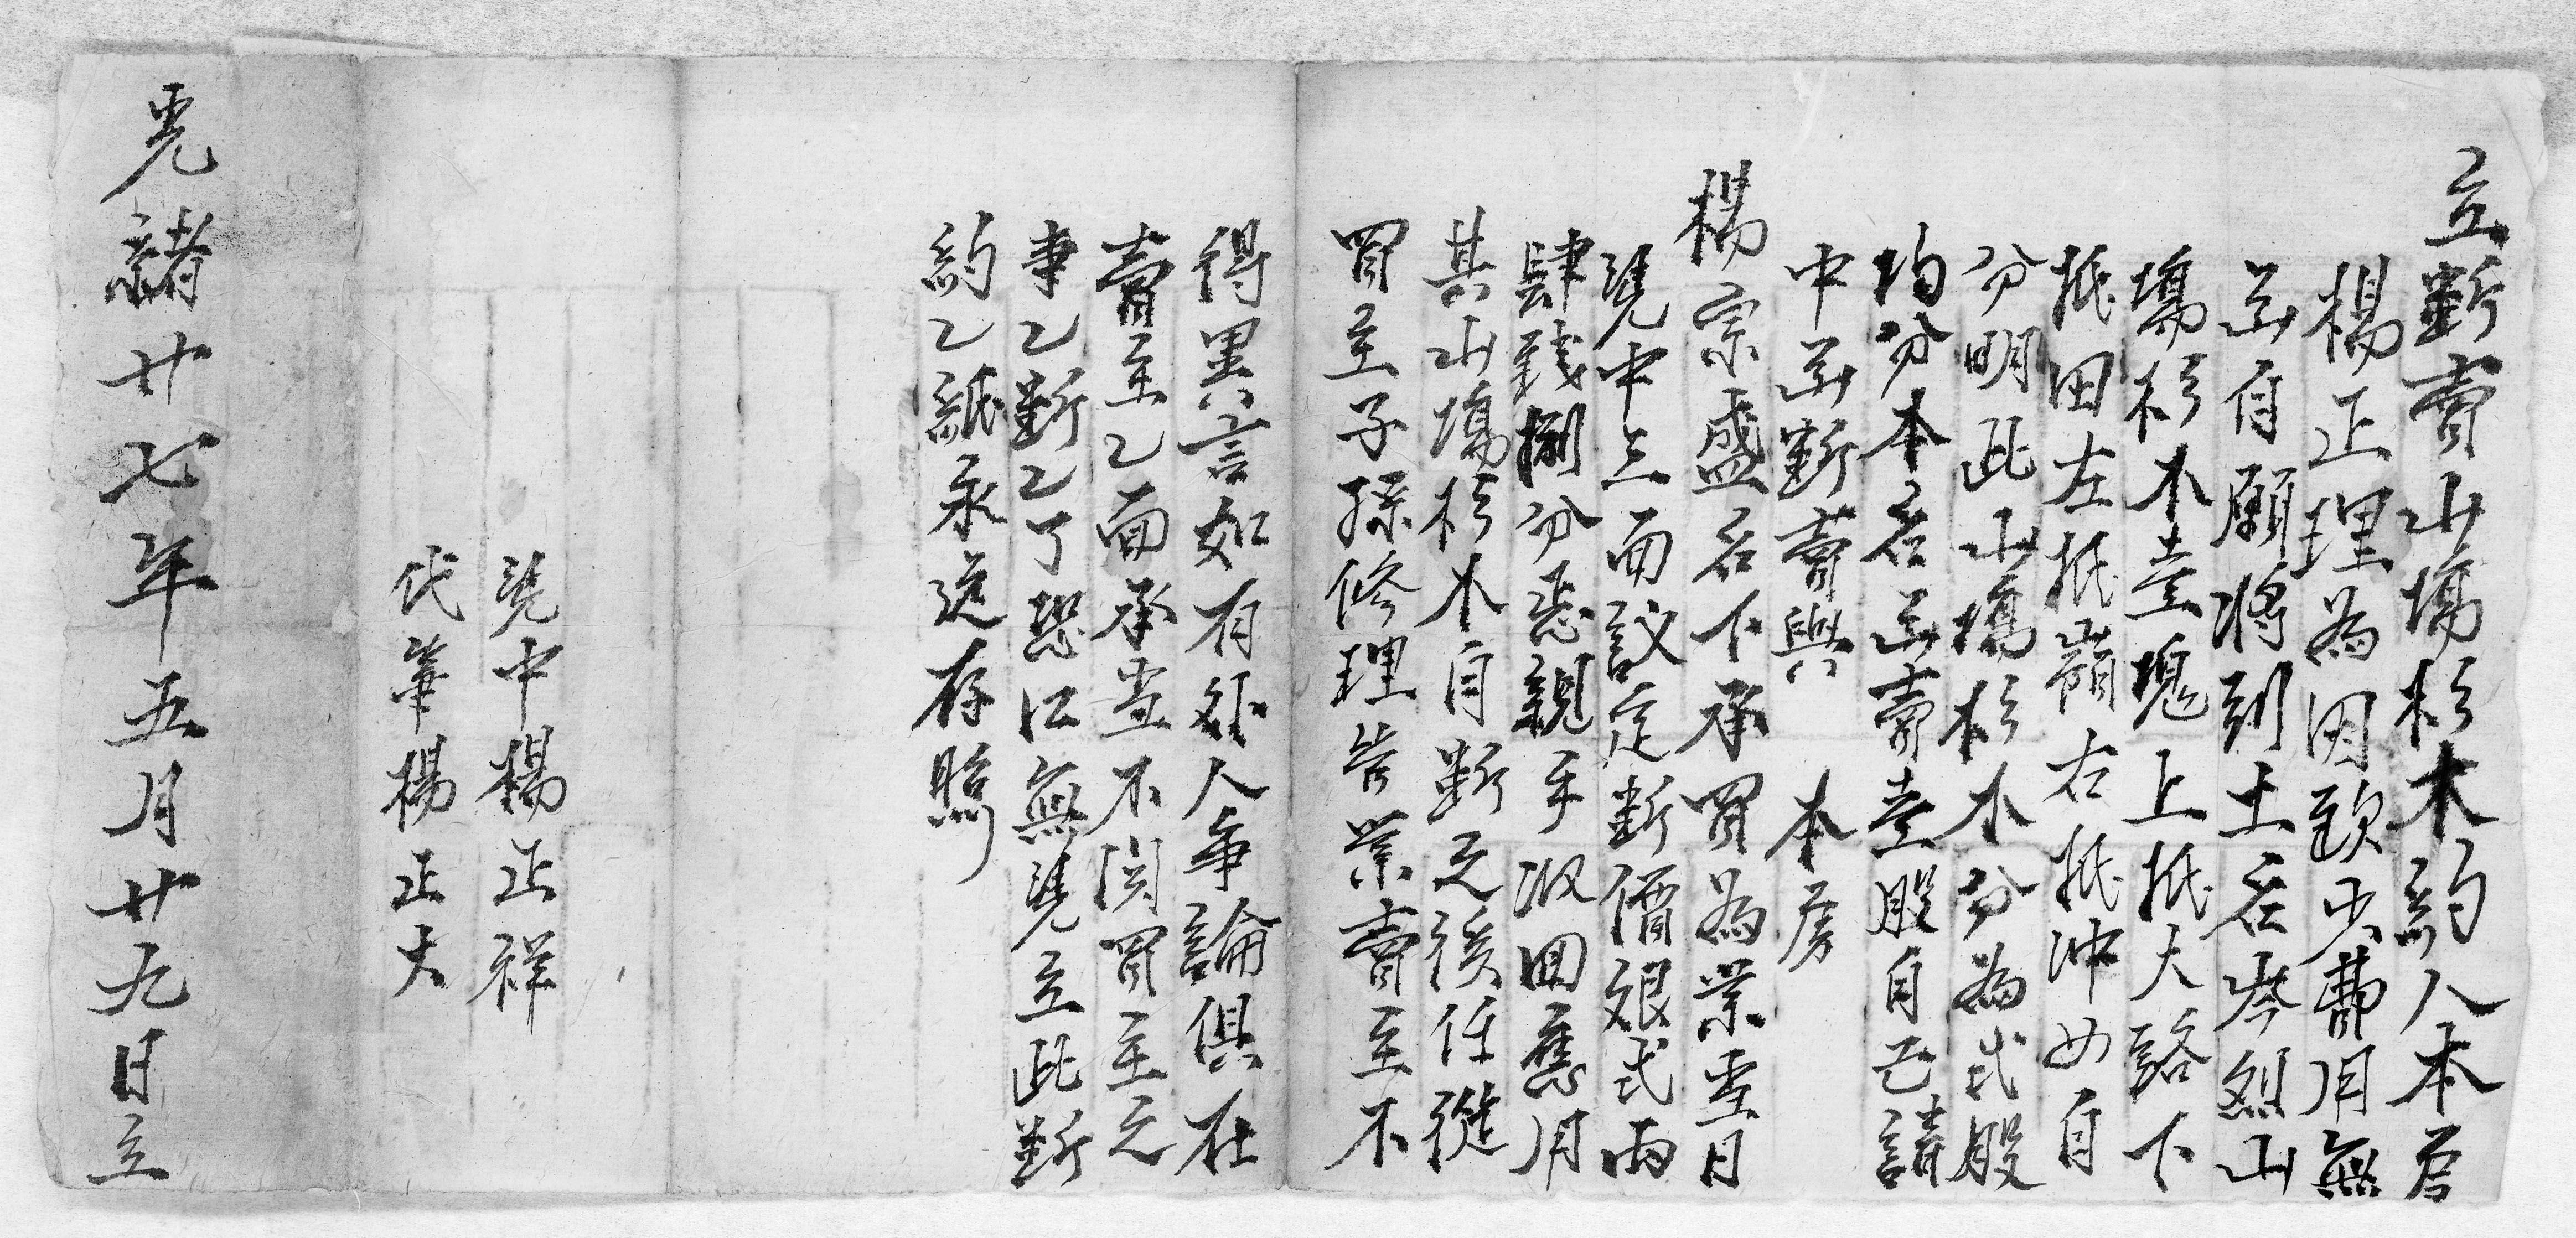 立斷賣山塲杉木約人本房
楊正理為因欧少費用無
出自願將到土名岑烈山
塲杉木壹塊上抵大路下
抵田左抵嶺右抵冲四自
分明此山塲杉木分為弍股
均分本名出賣壹股自己請
中出斷賣與 本房
楊宗盛名下承買為業壹日
凴中三面議定斷價銀弍両
肆錢捌分悉親手收回應用
其山塲杉木自斷之後任從
買主子孫修理管業賣主不
得異言如有外人争論俱在
賣主乙面承当不関買主之
事乙斷乙了恐口無凴立此斷
約乙紙永遠存照
凴中楊正祥
代筆楊正大
光緒廿七年五月廿九日立